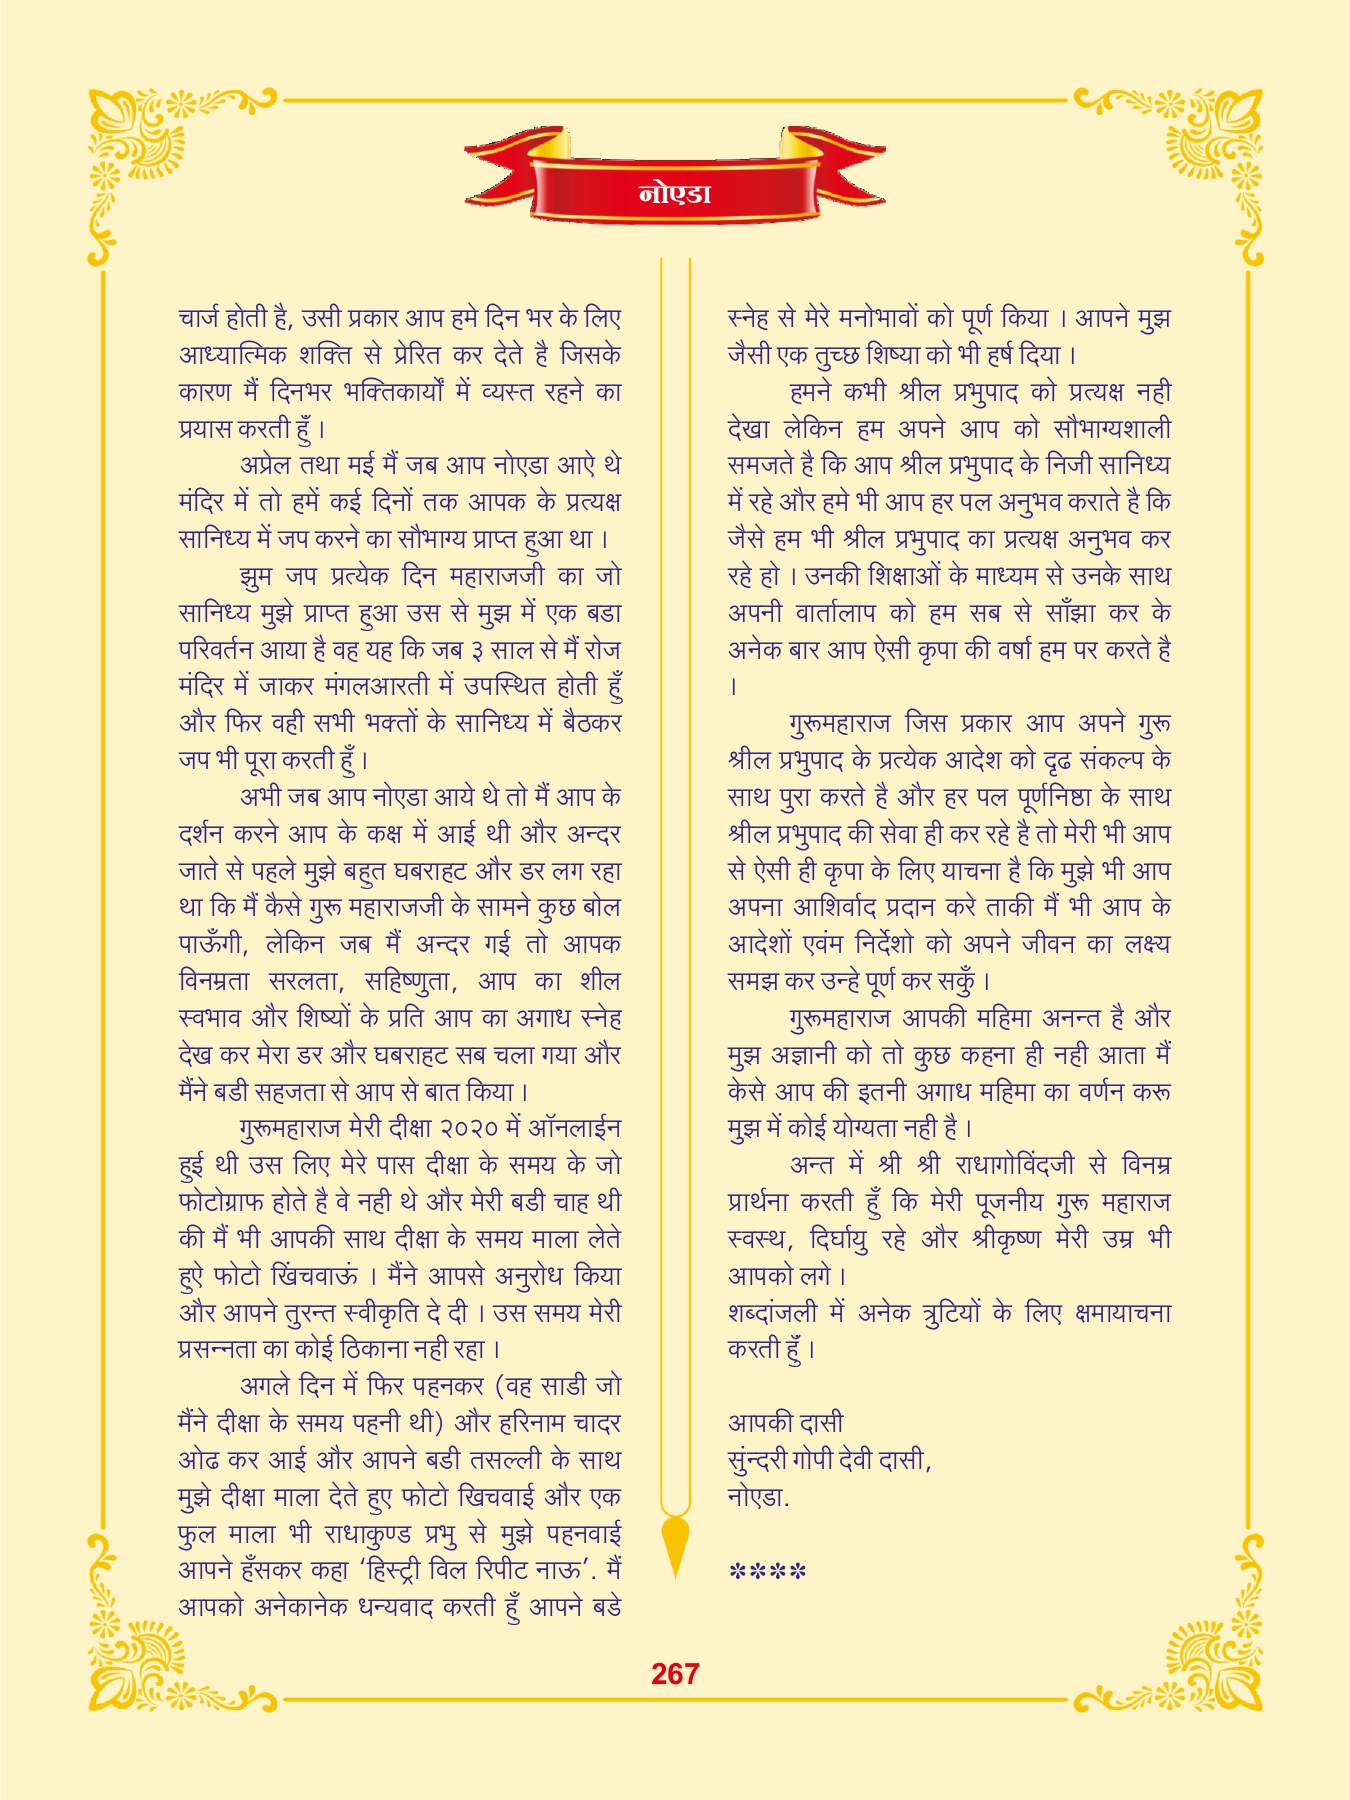 नोएडा
चार्ज होती है, उसी प्रकार आप हमे दिन भर के लिए
आध्यात्मिक शक्ति से प्रेरित कर देते है जिसके
कारण मैं दिनभर भक्तिकार्यों में व्यस्त रहने का
प्रयास करती हुँ ।
अप्रेल तथा मई मैं जब आप नोएडा आऐ थे
मंदिर में तो हमें कई दिनों तक आपक के प्रत्यक्ष
सानिध्य में जप करने का सौभाग्य प्राप्त हुआ था ।
झुम जप प्रत्येक दिन महाराजजी का जो
सानिध्य मुझे प्राप्त हुआ उस से मुझ में एक बडा
परिवर्तन आया है वह यह कि जब ३ साल से मैं रोज
मंदिर में जाकर मंगलआरती में उपस्थित होती हुँ
और फिर वही सभी भक्तों के सानिध्य में बैठकर
जप भी पूरा करती हुँ ।
अभी जब आप नोएडा आये थे तो मैं आप के
दर्शन करने आप के कक्ष में आई थी और अन्दर
जाते से पहले मुझे बहुत घबराहट और डर लग रहा
था कि मैं कैसे गुरू महाराजजी के सामने कुछ बोल
पाऊँगी, लेकिन जब मैं अन्दर गई तो आपक
विनम्रता सरलता, सहिष्णुता, आप का शील
स्वभाव और शिष्यों के प्रति आप का अगाध स्नेह
देख कर मेरा डर और घबराहट सब चला गया और
मैंने बडी सहजता से आप से बात किया ।
गुरूमहाराज मेरी दीक्षा २०२० में ऑनलाईन
हुई थी उस लिए मेरे पास दीक्षा के समय के जो
फोटोग्राफ होते है वे नही थे और मेरी बडी चाह थी
की मैं भी आपकी साथ दीक्षा के समय माला लेते
हुऐ फोटो खिंचवाऊं । मैंने आपसे अनुरोध किया
और आपने तुरन्त स्वीकृति दे दी । उस समय मेरी
प्रसन्नता का कोई ठिकाना नही रहा ।
अगले दिन में फिर पहनकर (वह साडी जो
मैंने दीक्षा के समय पहनी थी) और हरिनाम चादर
ओढ कर आई और आपने बडी तसल्ली के साथ
मुझे दीक्षा माला देते हुए फोटो खिचवाई और एक
फुल माला भी राधाकुण्ड प्रभु से मुझे पहनवाई
आपने हँसकर कहा ‘हिस्ट्री विल रिपीट नाऊ’. मैं
आपको अनेकानेक धन्यवाद करती हुँ आपने बडे
स्नेह से मेरे मनोभावों को पूर्ण किया । आपने मुझ
जैसी एक तुच्छ शिष्या को भी हर्ष दिया ।
हमने कभी श्रील प्रभुपाद को प्रत्यक्ष नही
देखा लेकिन हम अपने आप को सौभाग्यशाली
समजते है कि आप श्रील प्रभुपाद के निजी सानिध्य
में रहे और हमे भी आप हर पल अनुभव कराते है कि
जैसे हम भी श्रील प्रभुपाद का प्रत्यक्ष अनुभव कर
रहे हो । उनकी शिक्षाओं के माध्यम से उनके साथ
अपनी वार्तालाप को हम सब से साँझा कर के
अनेक बार आप ऐसी कृपा की वर्षा हम पर करते है
।
गुरूमहाराज जिस प्रकार आप अपने गुरू
श्रील प्रभुपाद के प्रत्येक आदेश को दृढ संकल्प के
साथ पुरा करते है और हर पल पूर्णनिष्ठा के साथ
श्रील प्रभुपाद की सेवा ही कर रहे है तो मेरी भी आप
से ऐसी ही कृपा के लिए याचना है कि मुझे भी आप
अपना आशिर्वाद प्रदान करे ताकी मैं भी आप के
आदेशों एवंम निर्देशो को अपने जीवन का लक्ष्य
समझ कर उन्हे पूर्ण कर सकुँ ।
गुरूमहाराज आपकी महिमा अनन्त है और
मुझ अज्ञानी को तो कुछ कहना ही नही आता मैं
केसे आप की इतनी अगाध महिमा का वर्णन करू
मुझ में कोई योग्यता नही है ।
अन्त में श्री श्री राधागोविंदजी से विनम्र
प्रार्थना करती हुँ कि मेरी पूजनीय गुरू महाराज
स्वस्थ, दिर्घायु रहे और श्रीकृष्ण मेरी उम्र भी
आपको लगे ।
शब्दांजली में अनेक त्रुटियों के लिए क्षमायाचना
करती हुँ ।
आपकी दासी
सुंन्दरी गोपी देवी दासी,
नोएडा.
****
267